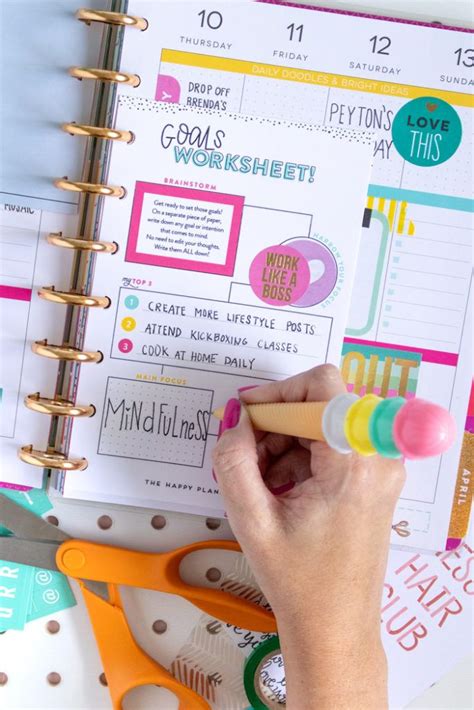 10
THURSDAY
11
FRIDAY
12
SATURDAY
13
SUNDAY
DAILY DOODLES & BRIGHT IDEAS
DROP OFF
BRENDA'S
PEYTON'S
LOVE
THIS
GOALS
WORKSHEET!
BRAINSTORM
Get ready to set those goals!
On a separate piece of paper,
write down any goal or intention
that comes to mind.
No need to edit your thoughts.
Write them ALL down!
WORK
LIKE A
BOSS
YOUR FOCUS
MOSAIC
my TOP 3
1 CREATE MORE LIFESTYLE POSTS
2 ATTEND KICKBOXING CLASSES
3 COOK AT HOME DAILY
MAIN FOCUS
MINDFULNESS
THE HAPPY PLAN
OUT
APRIL
HAIR
CLUB